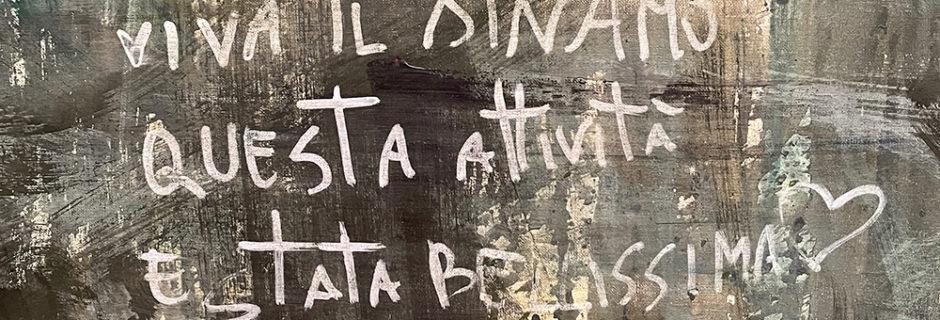 VIVA IL DINAMO
QUESTA ATTIVITÀ
È STATA BELLISSIMA